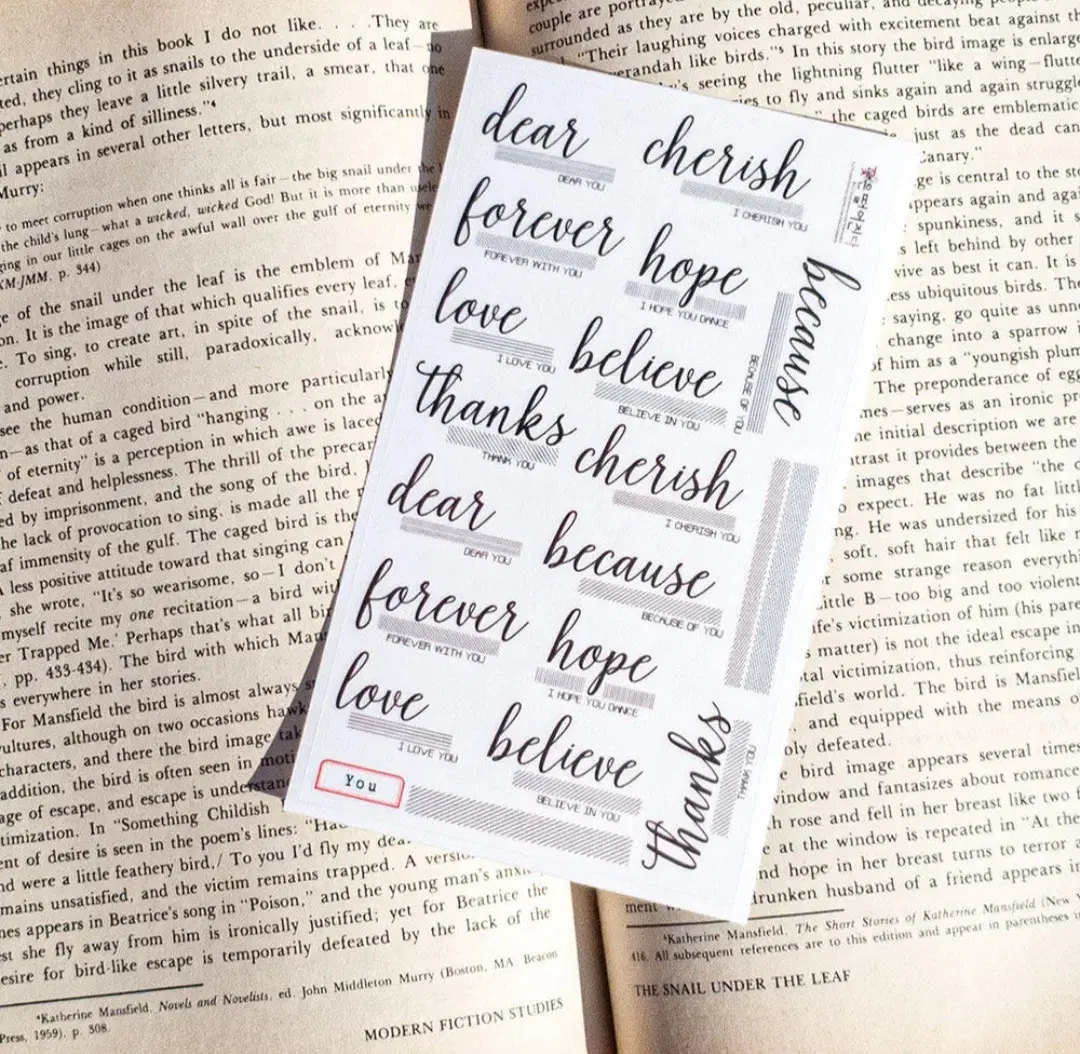 ertain things in this book I do not like. . . .They are
ted, they cling to it as snails to the underside of a leaf—no
perhaps they leave a little silvery trail, a smear, that one
as from a kind of silliness."⁴
il appears in several other letters, but most significantly in
Murry:
to meet corruption when one thinks all is fair—the big snail under the l
the child's lung—what a wicked, wicked God! But it is more than usele
ging in our little cages on the awful wall over the gulf of eternity we
KM-JMM, p. 344)
e of the snail under the leaf is the emblem of Man
on. It is the image of that which qualifies every leaf,
e. To sing, to create art, in spite of the snail, is to
corruption while still, paradoxically, acknow
and power.
see the human condition—and more particularly
n—as that of a caged bird "hanging . . . on the a
of eternity" is a perception in which awe is laced
defeat and helplessness. The thrill of the precar
ed by imprisonment, and the song of the bird,
he lack of provocation to sing, is made all the
af immensity of the gulf. The caged bird is the
less positive attitude toward that singing can
she wrote, "It's so wearisome, so—I don't
myself recite my one recitation—a bird wit
er Trapped Me.' Perhaps that's what all bir
, pp. 433-434). The bird with which Man
s everywhere in her stories.
For Mansfield the bird is almost always s
ultures, although on two occasions hawk
characters, and there the bird image tak
addition, the bird is often seen in moti
age of escape, and escape is understan
timization. In "Something Childish
ent of desire is seen in the poem's lines: "Had
nd were a little feathery bird,/ To you I'd fly my dear
mains unsatisfied, and the victim remains trapped. A versi
nes appears in Beatrice's song in "Poison," and the young man's anxi
st she fly away from him is ironically justified; yet for Beatrice the
esire for bird-like escape is temporarily defeated by the lack of the
⁴Katherine Mansfield, Novels and Novelists, ed. John Middleton Murry (Boston, MA: Beacon
Press, 1959), p. 308.
MODERN FICTION STUDIES
dear
DEAR YOU
cherish
I CHERISH YOU
forever
FOREVER WITH YOU
hope
I HOPE YOU DANCE
because
BECAUSE OF YOU
love
I LOVE YOU
believe
BELIEVE IN YOU
thanks
THANK YOU
cherish
I CHERISH YOU
dear
DEAR YOU
because
BECAUSE OF YOU
forever
FOREVER WITH YOU
hope
I HOPE YOU DANCE
love
I LOVE YOU
believe
BELIEVE IN YOU
thanks
THANK YOU
You
couple are portrayed
surrounded as they are by the old, peculiar, and decaying people
"Their laughing voices charged with excitement beat against th
erandah like birds."⁵ In this story the bird image is enlarge
seeing the lightning flutter "like a wing—flutte
to fly and sinks again and again struggl
the caged birds are emblematic
just as the dead can
Canary."
ge is central to the sto
ppears again and agai
spunkiness, and it s
left behind by other
vive as best it can. It is
ess ubiquitous birds. The
saying, go quite as unn
change into a sparrow
of him as a "youngish plum
The preponderance of egg
mes—serves as an ironic pr
he initial description we are
trast it provides between the
images that describe "the c
expect. He was no fat littl
ng. He was undersized for his
soft, soft hair that felt like
some strange reason everythi
Little B—too big and too violent
ife's victimization of him (his pare
matter) is not the ideal escape in
tal victimization, thus reinforcing
field's world. The bird is Mansfiel
and equipped with the means o
oly defeated.
e bird image appears several times
vindow and fantasizes about romance
h rose and fell in her breast like two f
e at the window is repeated in "At the
nd hope in her breast turns to terror a
drunken husband of a friend appears in
⁵Katherine Mansfield, The Short Stories of Katherine Mansfield (New Y
416. All subsequent references are to this edition and appear in parentheses i
THE SNAIL UNDER THE LEAF